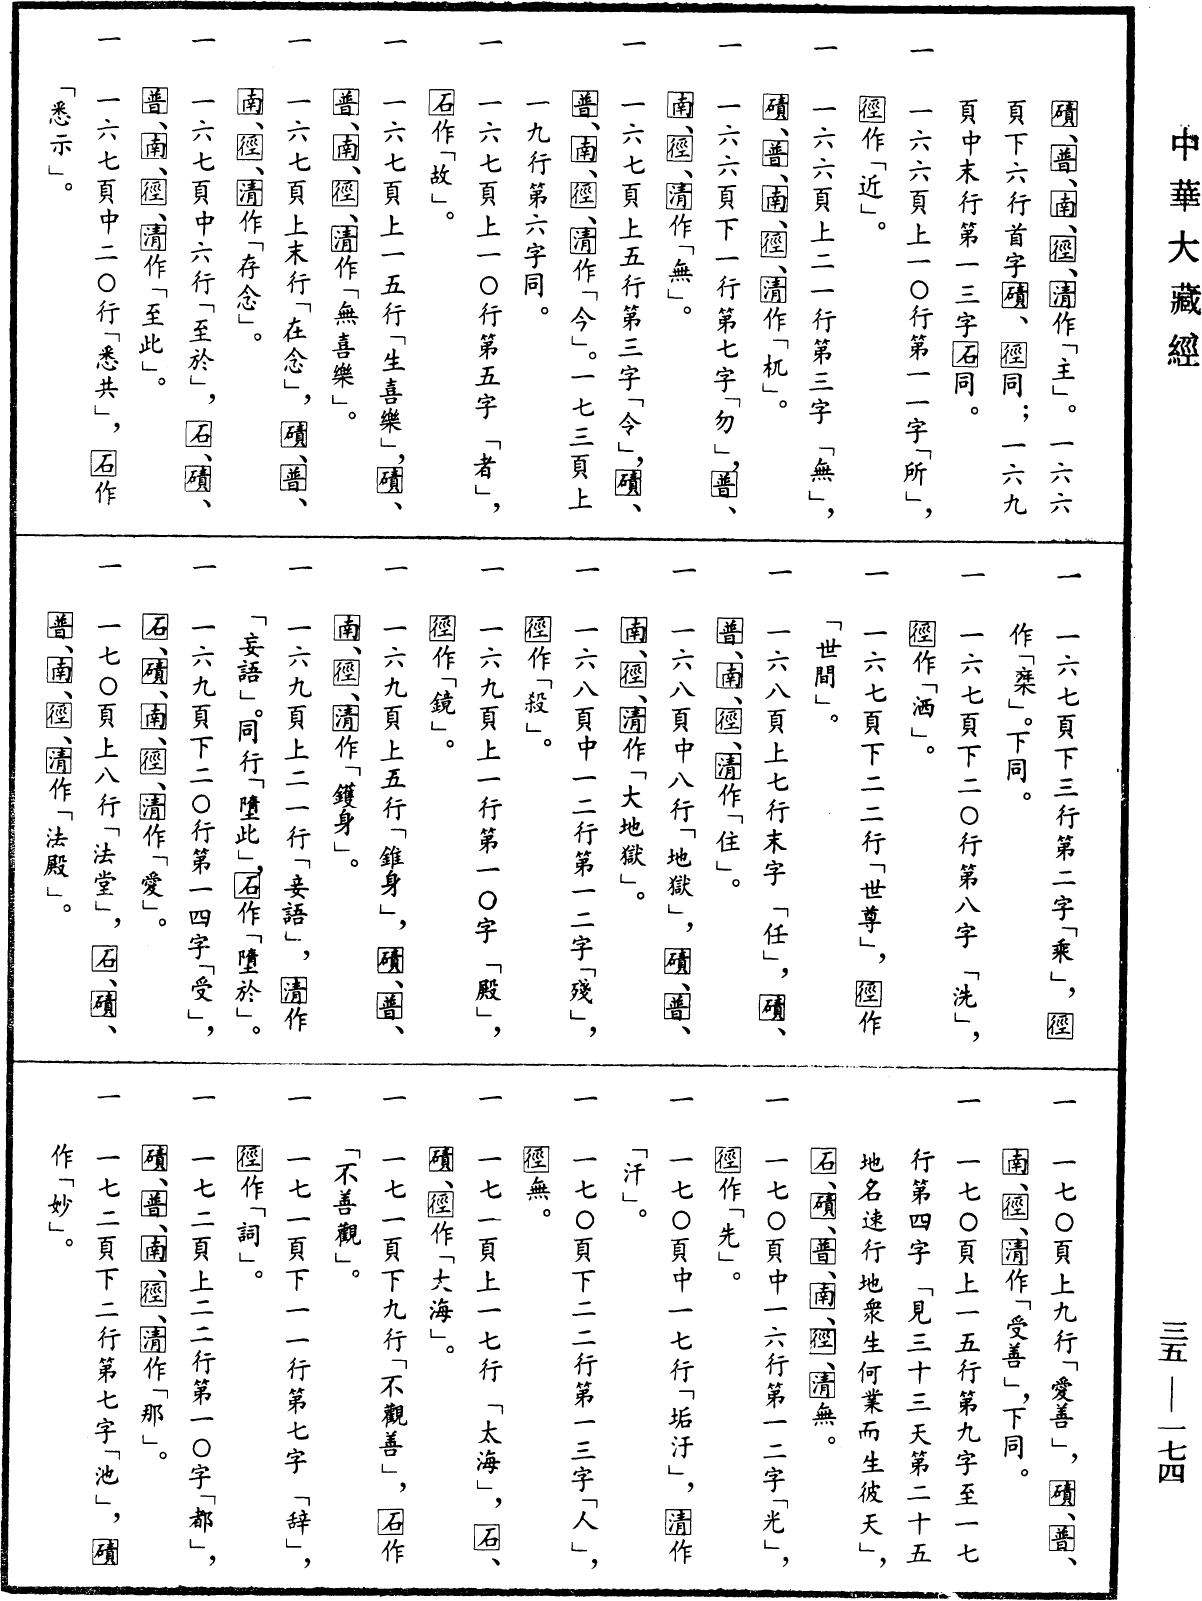 中華大藏經
磧、普、南、徑、清作「主」。一六六
頁下六行首字磧、徑同；一六九
頁中末行第一三字石同。
一 一六六頁上一〇行第一一字「所」，
徑作「近」。
一 一六六頁上二一行第三字「無」，
磧、普、南、徑、清作「杌」。
一 一六六頁下一行第七字「勿」，普、
南、徑、清作「無」。
一 一六七頁上五行第三字「令」，磧、
普、南、徑、清作「今」。一七三頁上
一九行第六字同。
一 一六七頁上一〇行第五字「者」，
石作「故」。
一 一六七頁上一五行「生喜樂」，磧、
普、南、徑、清作「無喜樂」。
一 一六七頁上末行「在念」，磧、普、
南、徑、清作「存念」。
一 一六七頁中六行「至於」，石、磧、
普、南、徑、清作「至此」。
一 一六七頁中二〇行「悉共」，石作
「悉示」。
一 一六七頁下三行第二字「乘」，徑
作「椉」。下同。
一 一六七頁下二〇行第八字「洗」，
徑作「洒」。
一 一六七頁下二二行「世尊」，徑作
「世間」。
一 一六八頁上七行末字「任」，磧、
普、南、徑、清作「住」。
一 一六八頁中八行「地獄」，磧、普、
南、徑、清作「大地獄」。
一 一六八頁中一二行第一二字「殘」，
徑作「殺」。
一 一六九頁上一行第一〇字「殿」，
徑作「鏡」。
一 一六九頁上五行「錐身」，磧、普、
南、徑、清作「鑊身」。
一 一六九頁上二一行「妾語」，清作
「妄語」。同行「墮此」，石作「墮於」。
一 一六九頁下二〇行第一四字「受」，
石、磧、南、徑、清作「愛」。
一 一七〇頁上八行「法堂」，石、磧、
普、南、徑、清作「法殿」。
一 一七〇頁上九行「愛善」，磧、普、
南、徑、清作「受善」，下同。
一 一七〇頁上一五行第九字至一七
行第四字「見三十三天第二十五
地名速行地衆生何業而生彼天」，
石、磧、普、南、徑、清無。
一 一七〇頁中一六行第一二字「光」，
徑作「先」。
一 一七〇頁中一七行「垢汙」，清作
「汗」。
一 一七〇頁下二二行第一三字「人」，
徑無。
一 一七一頁上一七行「太海」，石、
磧、徑作「大海」。
一 一七一頁下九行「不觀善」，石作
「不善觀」。
一 一七一頁下一一行第七字「辞」，
徑作「詞」。
一 一七二頁上二二行第一〇字「都」，
磧、普、南、徑、清作「那」。
一 一七二頁下二行第七字「池」，磧
作「妙」。
三五—一七四